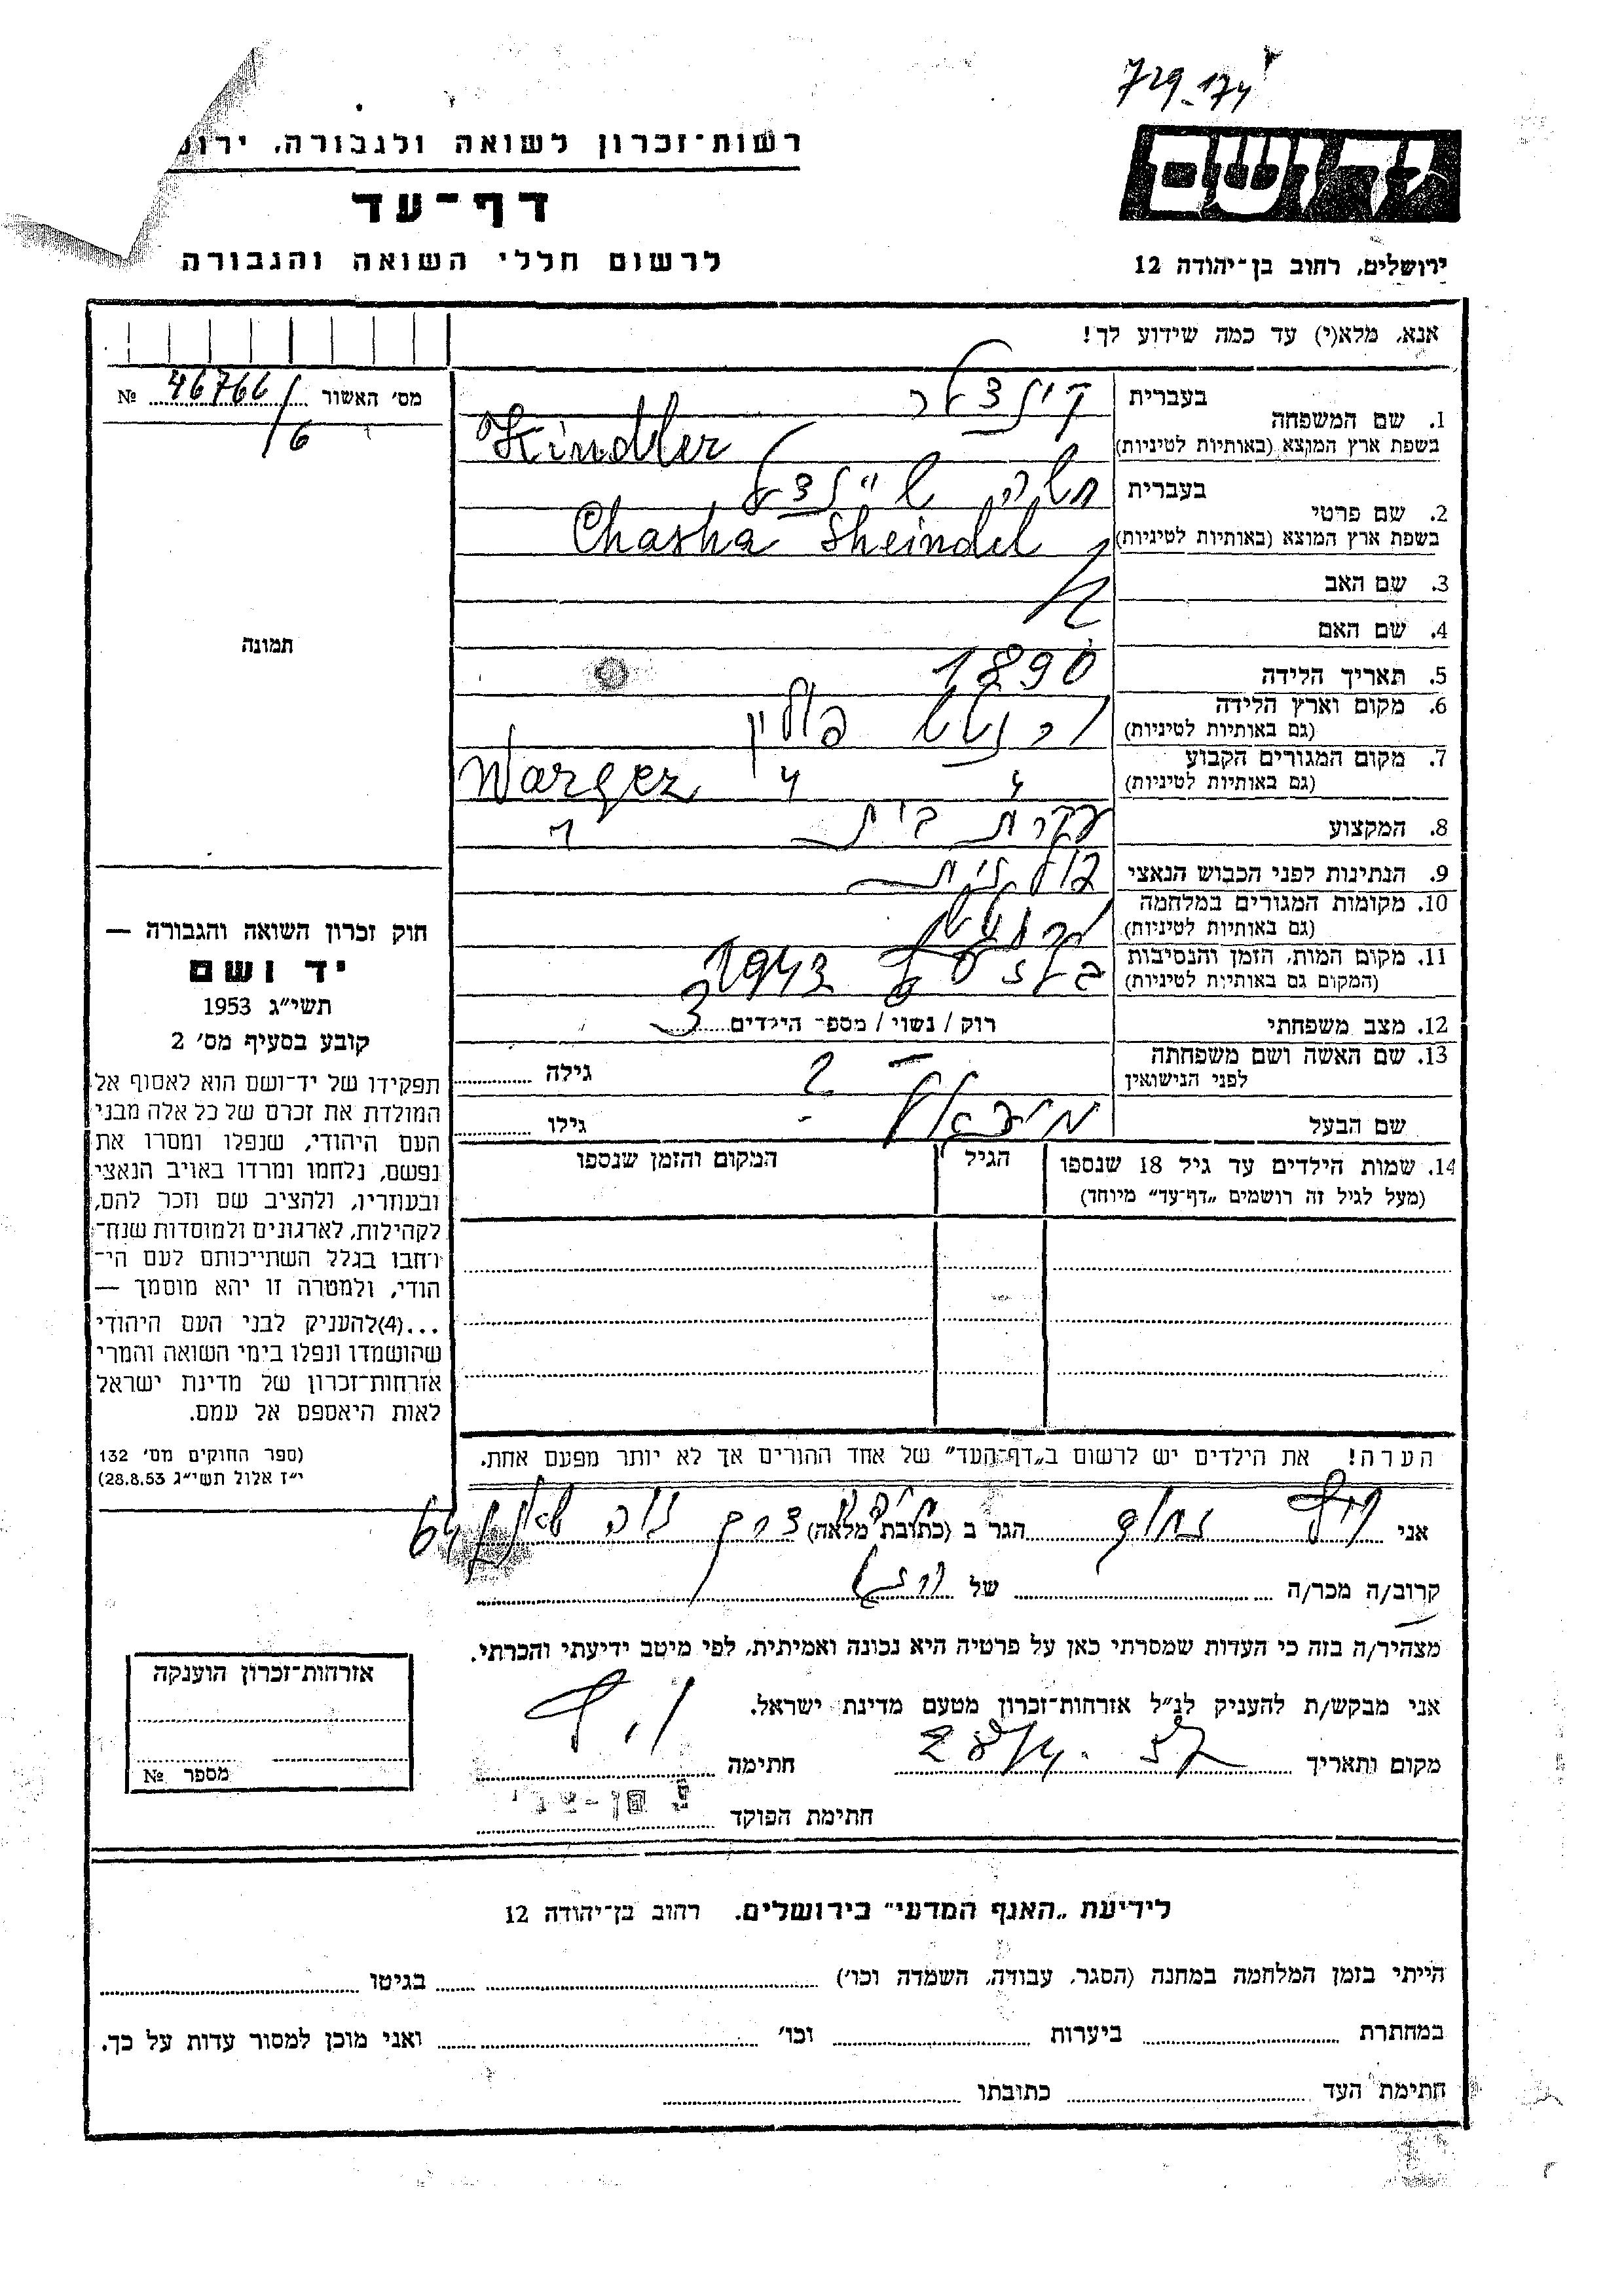 729.174
רשות-זכרון לשואה ולגבורה,
דף-עד
לרשום חללי השואה והגבורה
יד ושם
ירושלים, רחוב בן-יהודה 12
אנא, מלא(י) עד כמה שידוע לך!
מס׳ האשור № 46766/6
1. שם המשפחה
בעברית
בשפת ארץ המוצא (באותיות לטיניות) Kindler
2. שם פרטי
בעברית חשה שיינדל
בשפת ארץ המוצא (באותיות לטיניות) Chasha Sheindel
3. שם האב
4. שם האם
תמונה
5. תאריך הלידה 1890
6. מקום וארץ הלידה פולין
(גם באותיות לטיניות)
7. מקום המגורים הקבוע
(גם באותיות לטיניות)
8. המקצוע עקרת בית
9. הנתינות לפני הכבוש הנאצי פולנית
10. מקומות המגורים במלחמה
(גם באותיות לטיניות)
11. מקום המות, הזמן והנסיבות 1943
(המקום גם באותיות לטיניות)
12. מצב משפחתי רוק / נשוי / מספר הילדים 3
13. שם האשה ושם משפחתה
לפני הנישואין
גילה
שם הבעל מיכאל
גילו
14. שמות הילדים עד גיל 18 שנספו
(מעל לגיל זה רושמים „דף-עד” מיוחד)
הגיל
המקום והזמן שנספו
הערה! את הילדים יש לרשום ב„דף-העד” של אחד ההורים אך לא יותר מפעם אחת.
חוק זכרון השואה והגבורה —
יד ושם
תשי״ג 1953
קובע בסעיף מס׳ 2
תפקידו של יד-ושם הוא לאסוף אל
המולדת את זכרם של כל אלה מבני
העם היהודי, שנפלו ומסרו את
נפשם, נלחמו ומרדו באויב הנאצי
ובעוזריו, ולהציב שם וזכר להם,
לקהילות, לארגונים ולמוסדות שנח-
רחבו בגלל השתייכותם לעם הי-
הודי, ולמטרה זו יהא מוסמך —
...(4)להעניק לבני העם היהודי
שהושמדו ונפלו בימי השואה והמרי
אזרחות-זכרון של מדינת ישראל
לאות היאספם אל עמם.
(ספר החוקים מס׳ 132
י״ז אלול תשי״ג 28.8.53)
אני
הגר ב (כתובת מלאה)
קרוב/ה מכר/ה
של
מצהיר/ה בזה כי העדות שמסרתי כאן על פרטיה היא נכונה ואמיתית, לפי מיטב ידיעתי והכרתי.
אני מבקש/ת להעניק לנ״ל אזרחות-זכרון מטעם מדינת ישראל.
מקום ותאריך 28/4. 57
חתימה
חתימת הפוקד
אזרחות-זכרון הוענקה
מספר №
לידיעת „האגף המדעי” בירושלים. רחוב בן-יהודה 12
הייתי בזמן המלחמה במחנה (הסגר, עבודה, השמדה וכו׳) בגיטו
במחתרת ביערות וכו׳ ואני מוכן למסור עדות על כך.
חתימת העד כתובתו